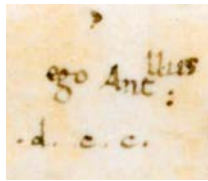 ego Anc llus :
. d . c . c .